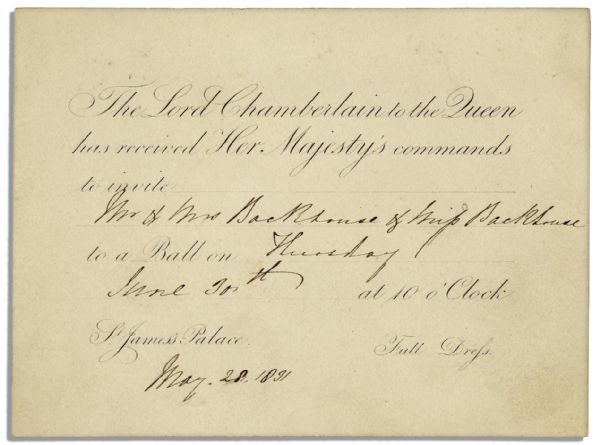 The Lord Chamberlain to the Queen
has received Her Majesty's commands
to invite
Mr & Mrs Backhouse & Miss Backhouse
to a Ball on Thursday
June 30th at 10 o'Clock
St. James's Palace. Full Dress.
May. 28. 1831